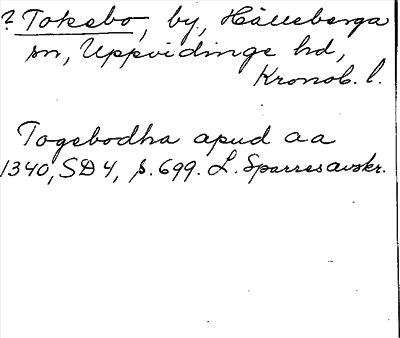 ? Toksbo, by, Hälleberga
sn, Uppvidinge hd,
Kronob. l.
Togsbodha apud aa
1340, SD 4, s. 699. L. Sparres avskr.